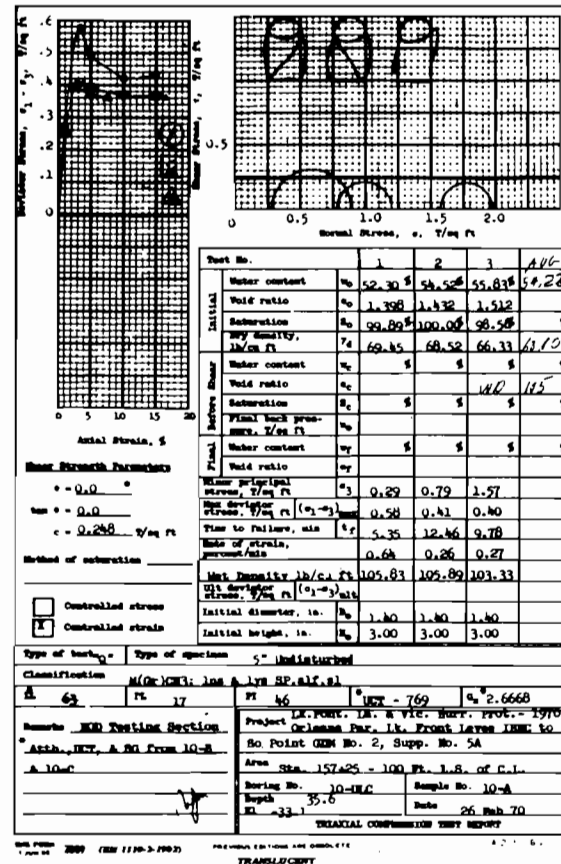 .6
.5
.4
.3
.2
.1
0
0 5 10 15 20
Axial Strain, %
Deviator Stress, σ1 - σ3, T/sq ft
Shear Stress, τ, T/sq ft
0.5
0
0 0.5 1.0 1.5 2.0
Normal Stress, σ, T/sq ft
Shear Strength Parameters
φ = 0.0 °
tan φ = 0.0
c = 0.248 T/sq ft
Method of saturation
Controlled stress
X Controlled strain
Test No. 1 2 3 AVG
Initial
Water content w₀ 52.30 % 54.52% 55.83%
Void ratio e₀ 1.398 1.432 1.512
Saturation S₀ 99.89% 100.00% 98.58%
Dry density, lb/cu ft γd 69.45 68.52 66.33
Before Shear
Water content wc % % %
Void ratio ec
Saturation Sc % % %
Final back pressure, T/sq ft u₀
Final
Water content wf % % %
Void ratio ef
Minor principal stress, T/sq ft σ3 0.29 0.79 1.57
Max deviator stress, T/sq ft (σ1-σ3)max 0.58 0.41 0.40
Time to failure, min tf 5.35 12.46 9.78
Rate of strain, percent/min 0.64 0.26 0.27
Wet Density lb/cu ft 105.83 105.89 103.33
Ult deviator stress, T/sq ft (σ1-σ3)ult
Initial diameter, in. D₀ 1.40 1.40 1.40
Initial height, in. H₀ 3.00 3.00 3.00
Type of test "Q" Type of specimen 5" Undisturbed
Classification
LL 63 PL 17 PI 46 *UCT - 769 Gs *2.6668
Remarks NOD Testing Section
*Atth., UCT, & SG from 10-B
& 10-C
Project LK.PONT. LA. & Vic. Hurr. Prot.- 1970
Orleans Par. Lt. Front Levee IHNC to
So. Point GDM No. 2, Supp. No. 5A
Area Sta. 157+25 - 100 Ft. L.S. of C.L.
Boring No. 10-ULC Sample No. 10-A
Depth El 35.6 -33.1 Date 26 Feb 70
TRIAXIAL COMPRESSION TEST REPORT
PREVIOUS EDITIONS ARE OBSOLETE
TRANSLUCENT